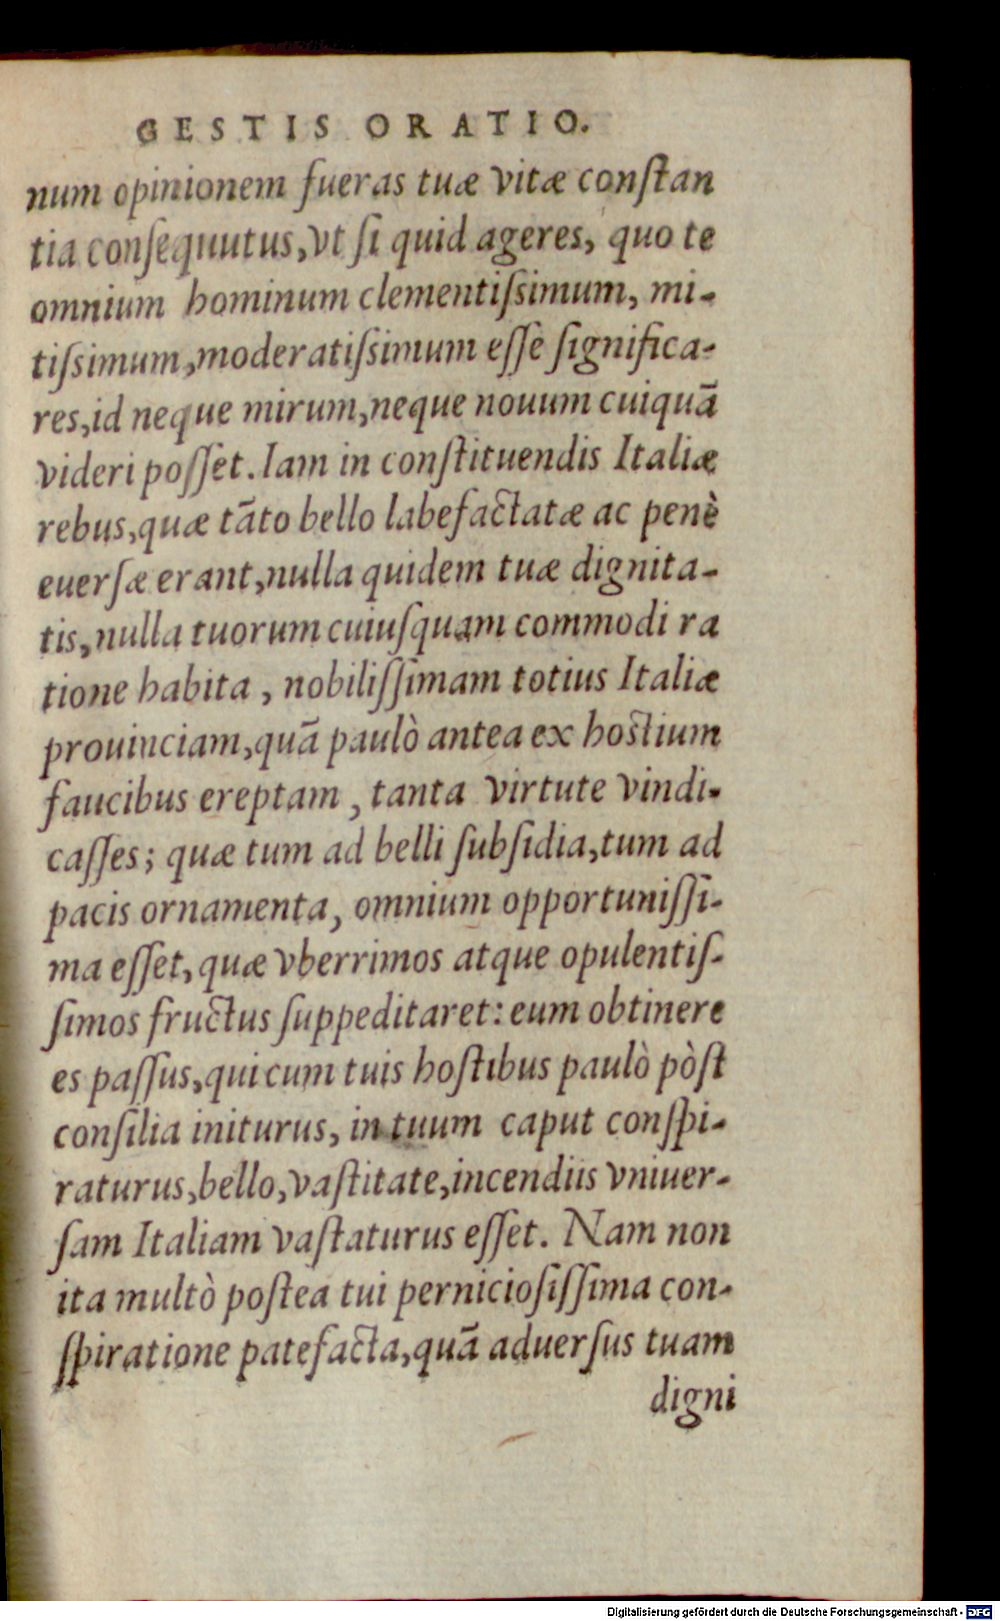 GESTIS ORATIO.
num opinionem fueras tuæ vitæ conſtan
tia conſequutus,vt ſi quid ageres, quo te
omnium hominum clementiſsimum, mi-
tiſsimum,moderatiſsimum eſſe ſignifica-
res,id neque mirum,neque nouum cuiquā
videri poſſet. Iam in conſtituendis Italiæ
rebus,quæ tāto bello labefactatæ ac penè
euerſæ erant,nulla quidem tuæ dignita-
tis,nulla tuorum cuiuſquam commodi ra
tione habita , nobiliſſimam totius Italiæ
prouinciam,quā paulò antea ex hostium
faucibus ereptam , tanta virtute vindi-
caſſes; quæ tum ad belli ſubſidia,tum ad
pacis ornamenta, omnium opportuniſſi-
ma eſſet,quæ vberrimos atque opulentiſ-
ſimos fructus ſuppeditaret: eum obtinere
es paſſus,qui cum tuis hoſtibus paulò pòſt
conſilia initurus, in tuum caput conſpi-
raturus,bello,vaſtitate,incendiis vniuer-
ſam Italiam vaſtaturus eſſet. Nam non
ita multò poſtea tui pernicioſiſſima con-
ſpiratione patefacta,quā aduerſus tuam
digni
Digitalisierung gefördert durch die Deutsche Forschungsgemeinschaft - DFG